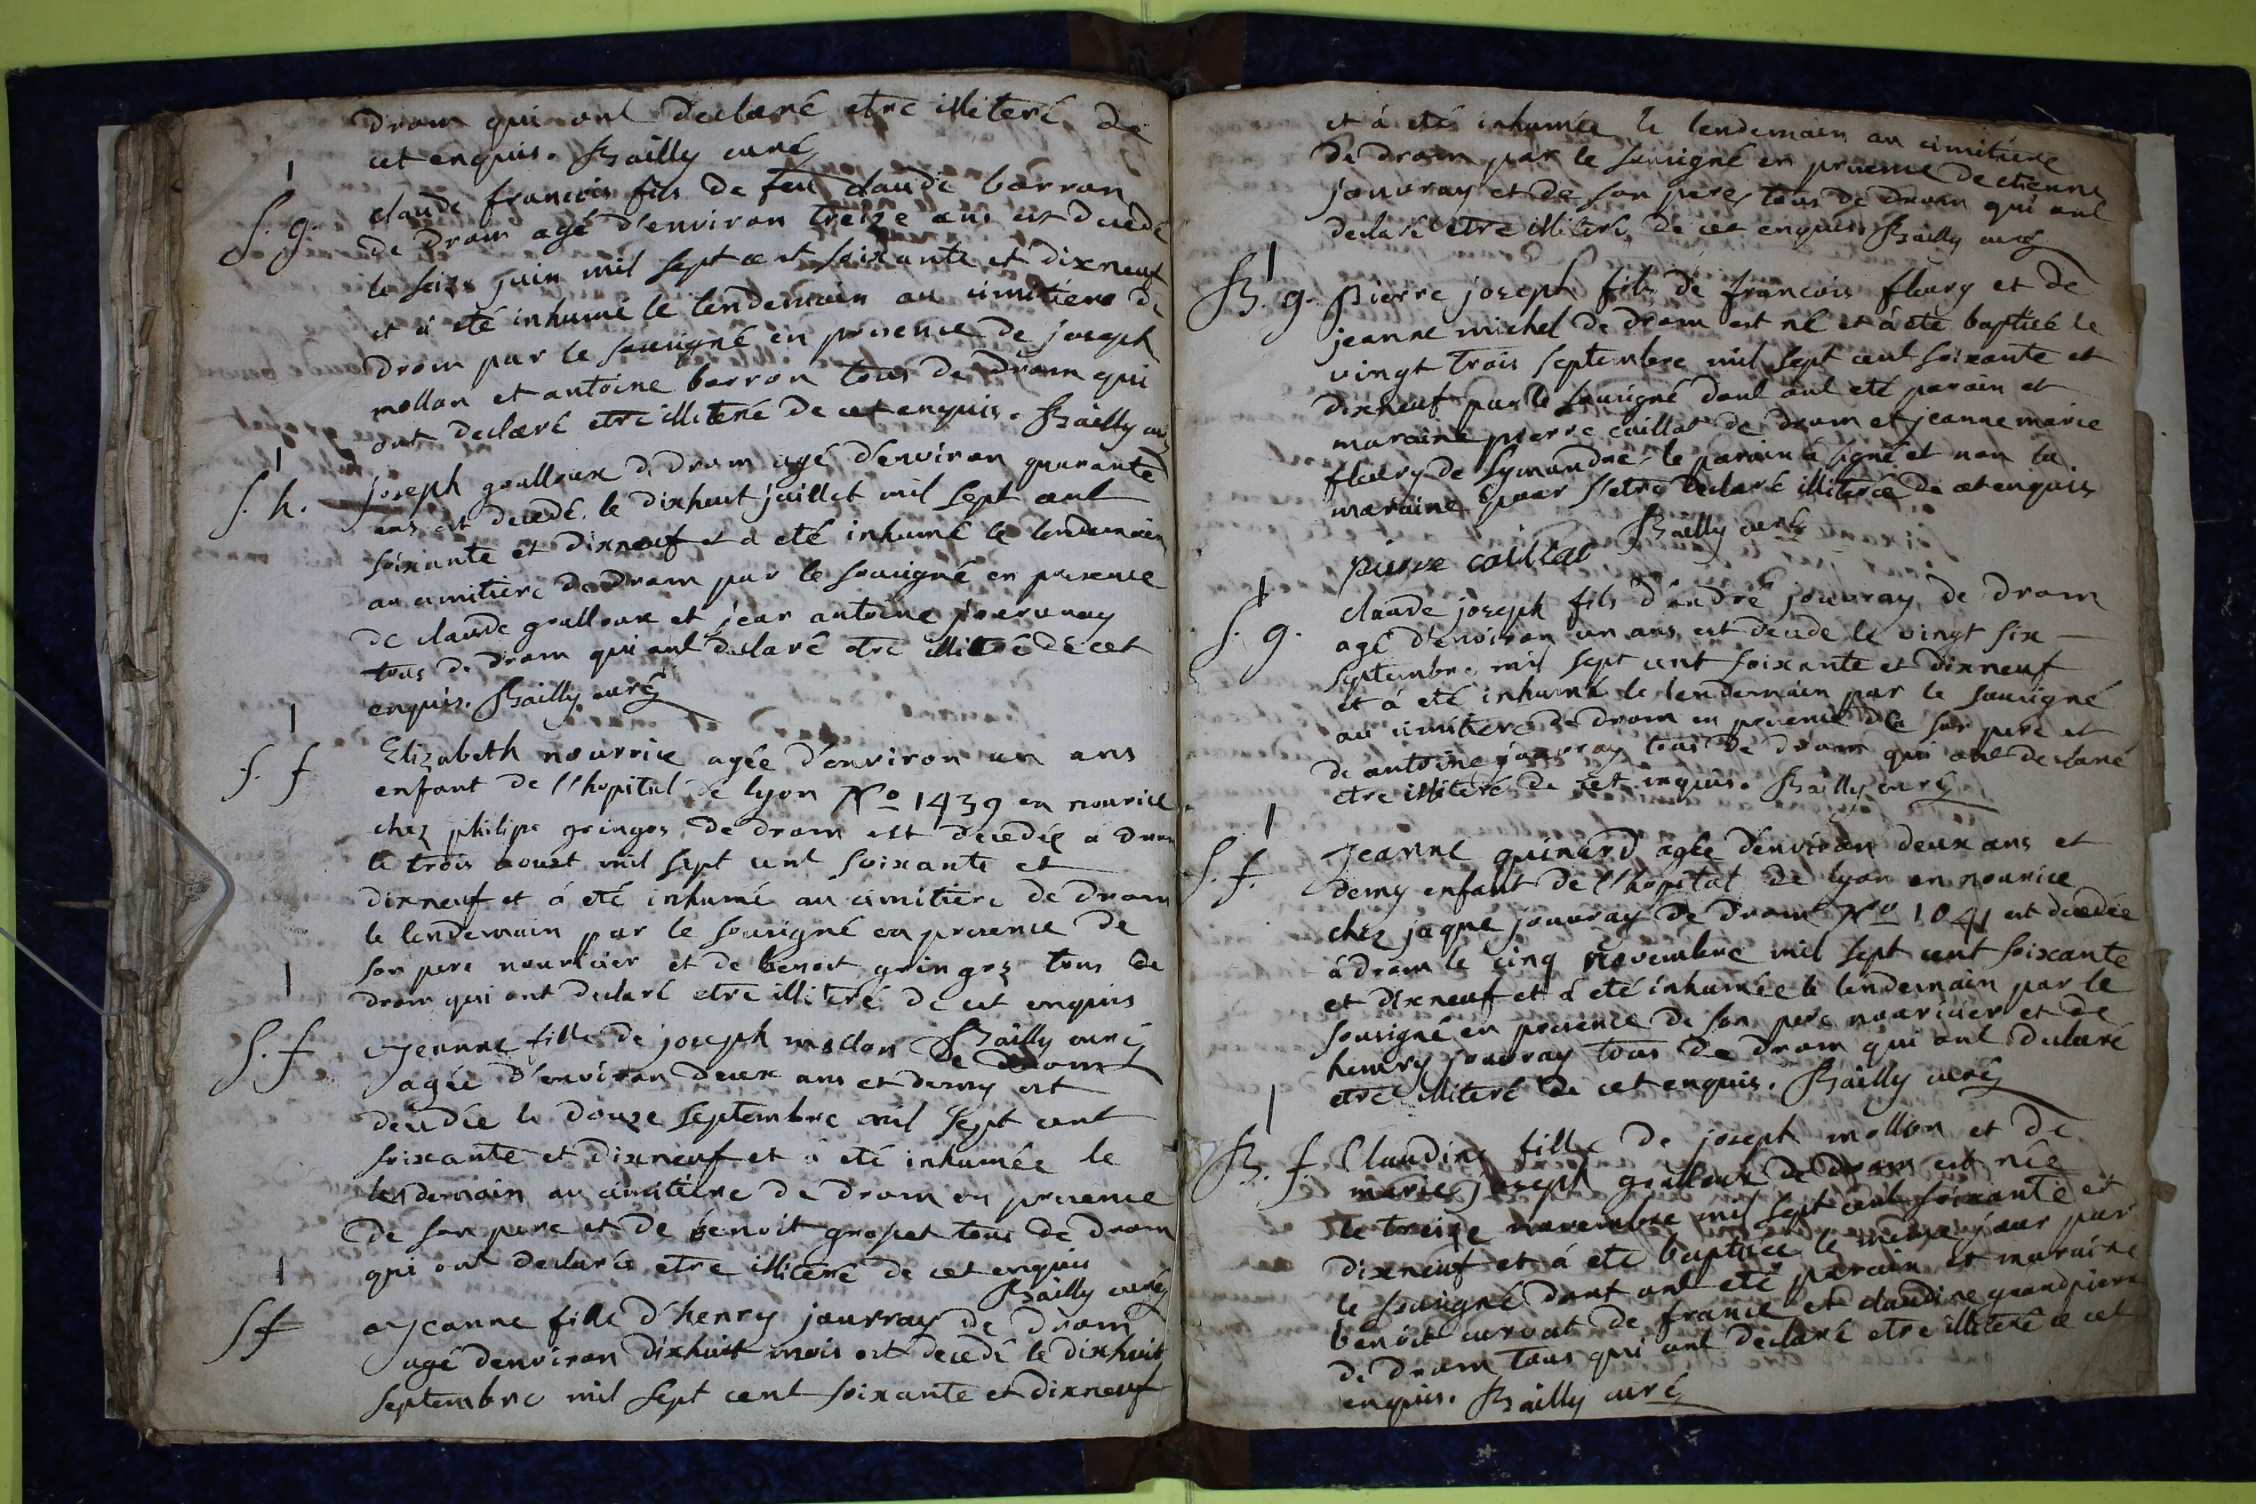 drom qui ont declaré etre illiteré de
cet enquis. Bailly curé
S. g. claude francois fils de feu claude barron
de drom agé d'environ treize ans est decedé
le seize juin mil sept cent soixante et dixneuf
et à eté inhumé le lendemain au cimitiere de
drom par le sousigné en presence de joseph
mollon et antoine barron tous de drom qui
ont declaré etre illiteré de cet enquis. Bailly curé
S. h. joseph goulloux de drom agé d'environ quarante
ans est decedé le dixhuit juillet mil sept cent
soixante et dixneuf et a eté inhumé le lendemain
au cimitiere de drom par le sousigné en presence
de claude goulloux et jean antoine
tous de drom qui ont declaré etre illiteré de cet
enquis. Bailly curé
S. f Elizabeth nourrice agée d'environ un ans
enfant de l'hopital de lyon No 1439 en nourice
chez philipe gringoz de drom est decedée a drom
le trois aoust mil sept cent soixante et
dixneuf et à eté inhumé au cimitiere de drom
le lendemain par le sousigné en presence de
son pere nouricier et de benoit gringoz tous de
drom qui ont declaré etre illiteré de cet enquis
Bailly curé
S. f Jeanne fille de joseph mollon de drom
agée d'environ deux ans et demy est
decedée le douze septembre mil sept cent
soixante et dixneuf et à eté inhumée le
lendemain au cimitiere de drom en presence
de son pere et de benoit grospet tous de drom
qui ont declarée etre illiteré de cet enquis
Bailly curé
S f Jeanne fille d'henry jouvray de drom
agé denviron dixhuit mois est decedé le dixhuit
septembre mil sept cent soixante et dixneuf
et à eté inhumée le lendemain au cimitiere
de drom par le sousigné en presence de etienne
jouvray et de son pere tous de drom qui ont
declaré etre illiteré de cet enquis Bailly curé
B. g. Pierre joseph fils de francois fleury et de
jeanne michel de drom est né et à eté baptisé le
vingt trois septembre mil sept cent soixante et
dixneuf par le sousigné dont ont eté parain et
maraine pierre caillat de drom et jeanne marie
fleury de Symandre, le parain à signé et non la
maraine pour s'etre declaré illiterée de cet enquis
Bailly curé
pierre caillat
S. g. claude joseph fils d'andré jouvray de drom
agé d'environ un ans est decedé le vingt six
septembre mil sept cent soixante et dixneuf
et à eté inhumé le lendemain par le sousigné
au cimitiere de drom en presence de son pere et
de antoine jouvray tous de drom qui ont declaré
etre illiteré de cet inquis. Bailly curé
S. f. Jeanne guinard agée d'environ deux ans et
demy enfant de l'hopital de lyon en nourice
chez jaque jouvray de drom No 1041 est decedée
à drom le cinq novembre mil sept cent soixante
et dixneuf et à eté inhumée le lendemain par le
sousigné en presence de son pere nouricier et de
henery jouvray tous de drom qui ont declaré
etre illiteré de cet enquis. Bailly curé
B. f. Claudine fille de joseph mollon et de
marie joseph goulloux de drom est née
le treize novembre mil sept cent soixante et
dixneuf et à eté baptisée le même jour par
le sousigné dont ont eté parain et maraine
benoit curvat de france et claudine grandpierre
de drom tous qui ont declaré etre illiteré de cet
enquis. Bailly curé